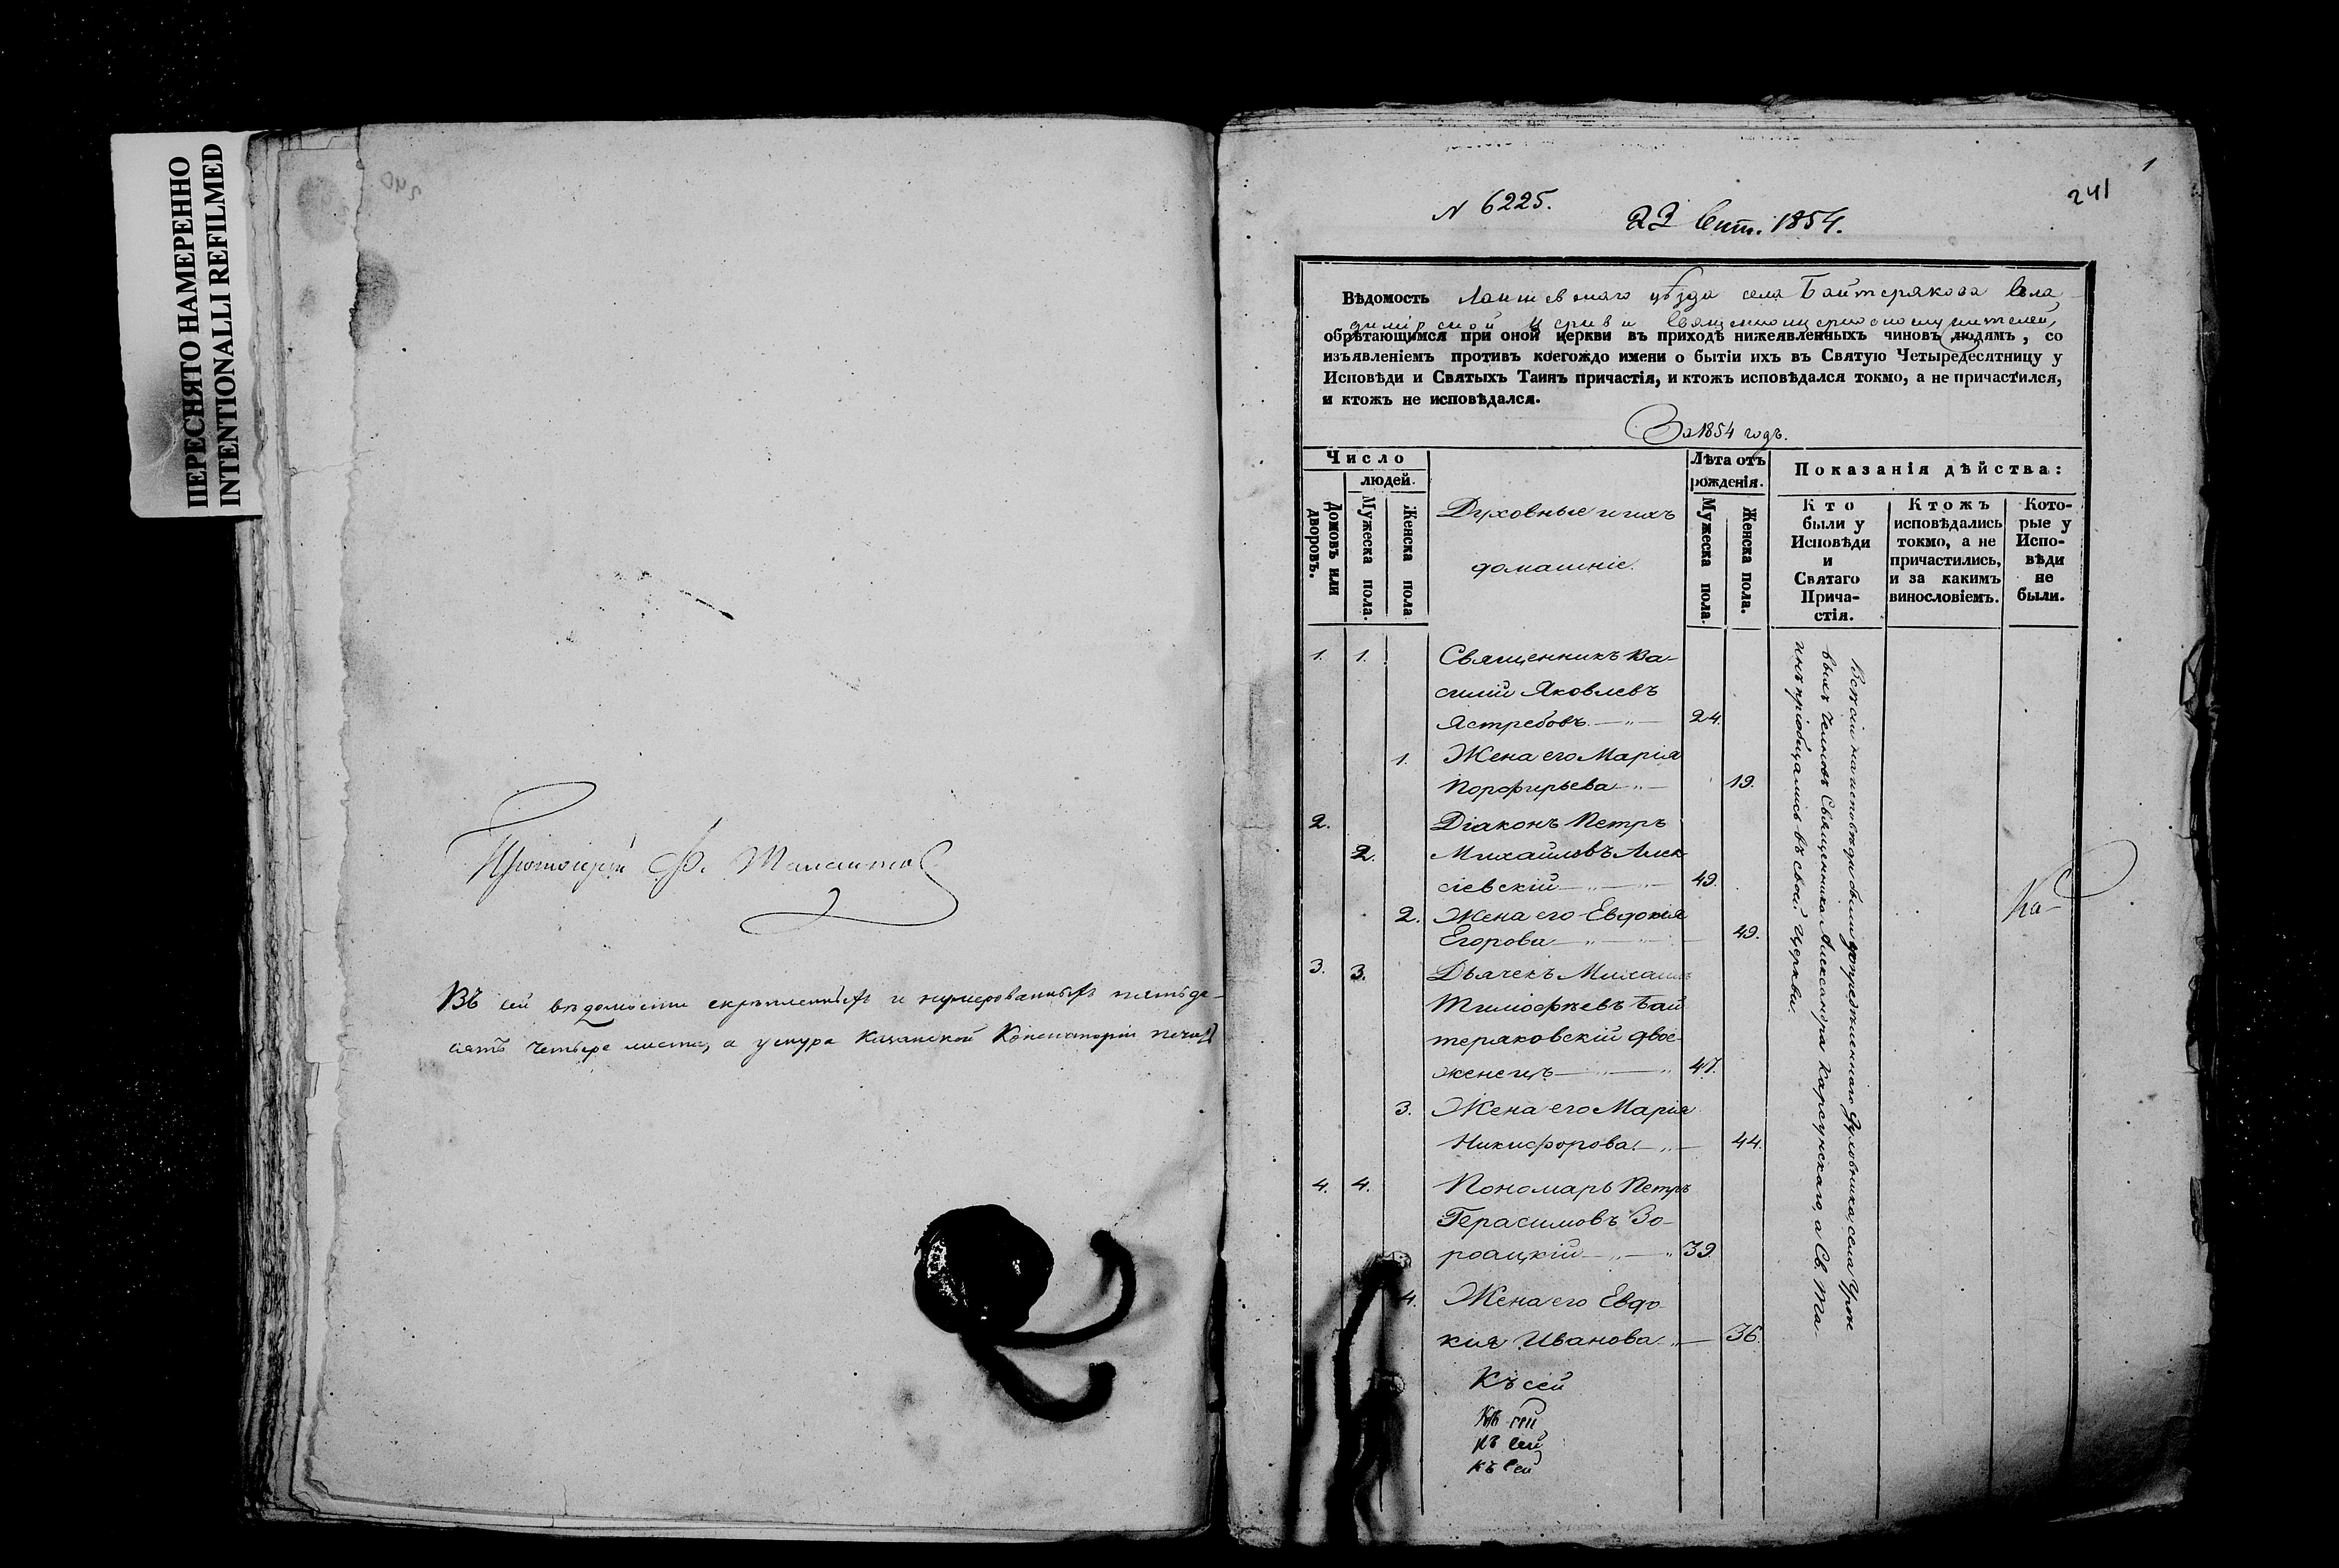 ПЕРЕСНЯТО НАМЕРЕННО
INTENTIONALLI REFILMED
240
Протоіерей
Въ сей вѣдомости скрѣпленныхъ и нумерованныхъ пятьде-
сятъ четыре листа, а у снура Казанской Консисторіи печать
1
241
N 6225.
23 Сент. 1854.
Вѣдомость Лаишевскаго уѣзда села Байтерякова Вла
димірской церкви Священноцерковнослужителей,
обрѣтающимся при оной церкви въ приходѣ нижеявленныхъ чиновъ людямъ, со
изъявленіемъ противъ коегождо имени о бытіи ихъ въ Святую Четыредесятницу у
Исповѣди и Святыхъ Таинъ причастія, и ктожъ исповѣдался токмо, а не причастился,
и ктожъ не исповѣдался.
За 1854 годъ.
Число
людей.
Домовъ или дворовъ.
Мужеска пола.
Женска пола
Духовные и ихъ
домашніе.
Лѣта отъ
рожденія.
Мужеска пола.
Женска пола.
Показанія дѣйства:
Кто
были у
Исповѣди
и
Святаго
Прича-
стія.
Ктожъ
исповѣдались
токмо, а не
причастились,
и за какимъ
винословіемъ.
Кото-
рые у
Испо-
вѣди
не
были.
1. 1. Священникъ Ва-
силій Яковлевъ
Ястребовъ 24.
1. Жена его Марія
Порфирьева 19.
2. Діаконъ Петръ
2. Михайловъ Алек
сіевскій 49.
2. Жена его Евдокія
Егорова 49.
3. 3. Дьячекъ Михаилъ
Тимофѣевъ Бай
теряковскій двое-
женецъ 47.
3. Жена его Марія
Никифорова 44.
4. 4. Пономарь Петръ
Герасимовъ
39
4. Жена его Евдо-
кія Иванова 36.
Къ сей
Къ сей
Къ сей
Къ сей
Всѣ сіи на исповѣди были у опредѣленнаго духовника, села
Священника Александра Карсунскаго, а Св. Та-
инъ пріобщались въ своей церкви.
Ка-